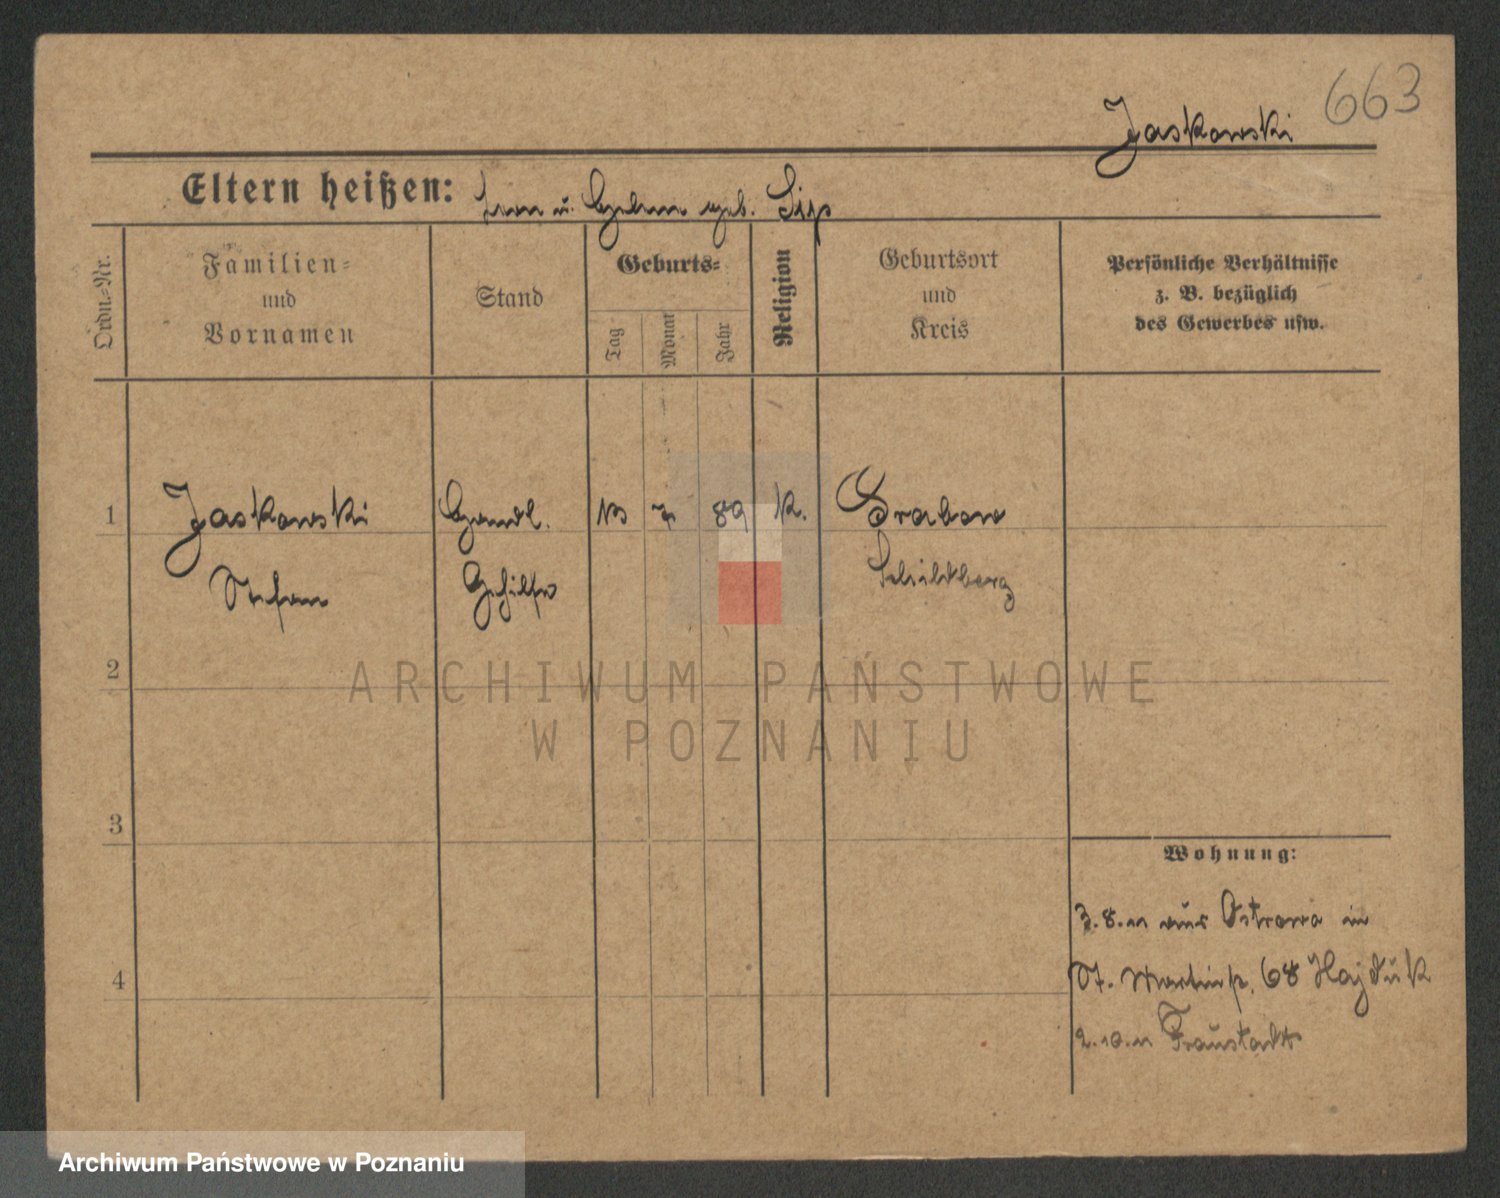 663
Jaskowski
Eltern heißen: Ivan u. geb. Sip
Ordn.-Nr.
Familien-
und
Vornamen
Stand
Geburts-
Tag
Monat
Jahr
Religion
Geburtsort
und
Kreis
Persönliche Verhältnisse
z. B. bezüglich
des Gewerbes usw.
1 Jaskowski Handl. 13 7 89 K. Grabow
Stefan Gehilfe Schildberg
2
3
4
Wohnung:
3.8.11 aus Ostrowo in
St. Martinstr. 68 Hajduk
2.10.11 Fraustadt
ARCHIWUM PAŃSTWOWE
W POZNANIU
Archiwum Państwowe w Poznaniu